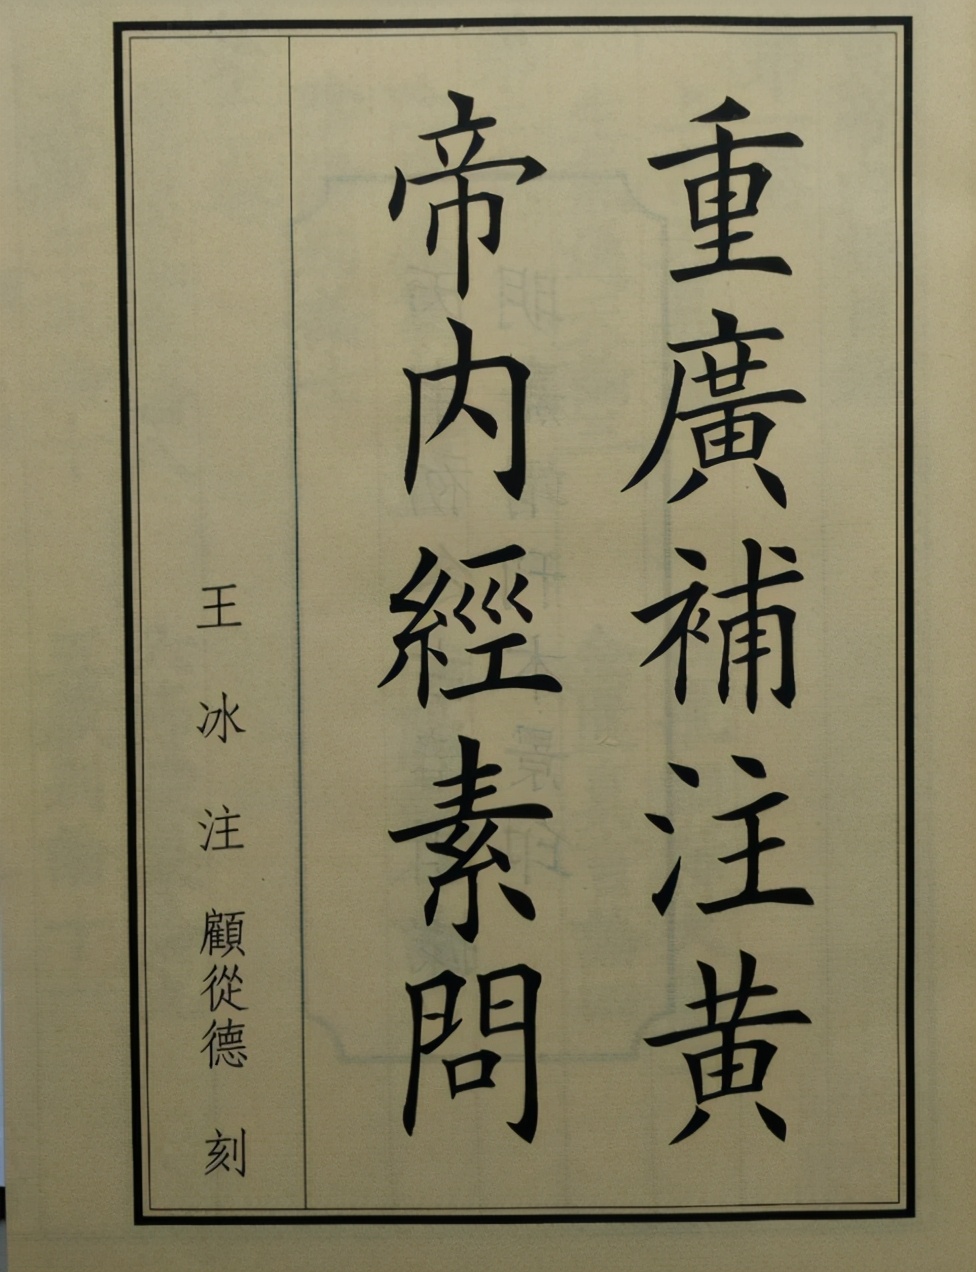 重廣補注黄
帝内經素問
王冰注 顧從德刻